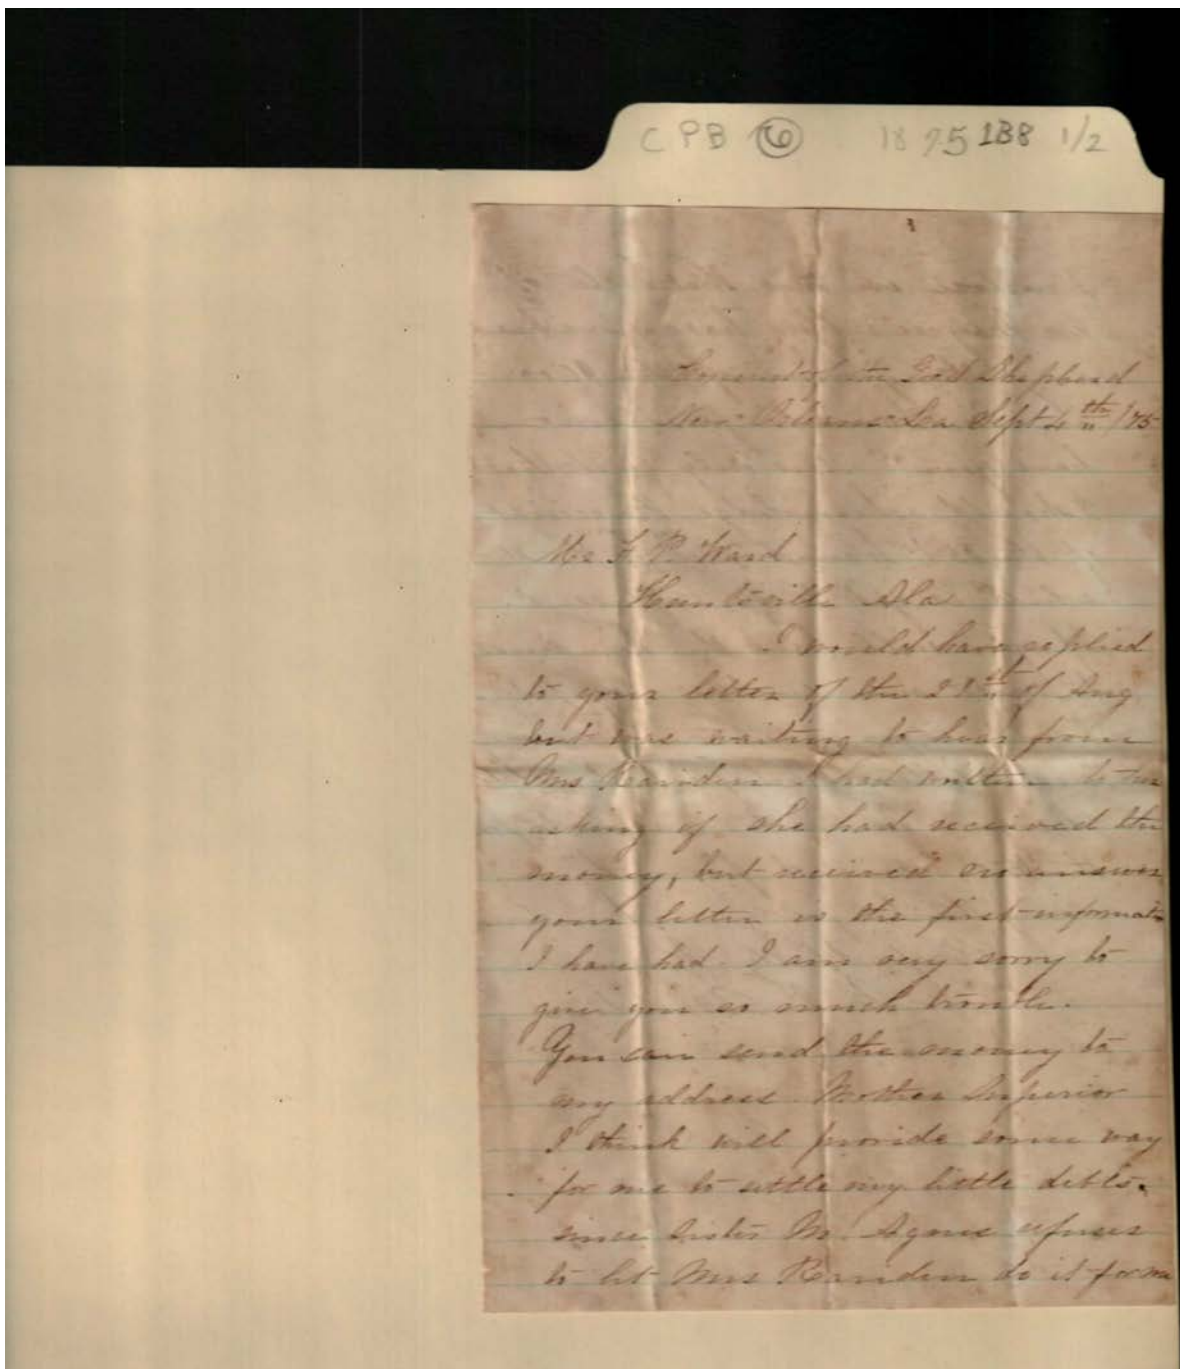 CPB 6 1875 188 1/2
Convent of the Good Shepherd
New Orleans La Sept 4th /75
Mr Ward
Huntsville Ala
I would have replied
to your letter of the 21st of Aug
but was waiting to hear from
Mrs I had written to her
asking if she had received the
money, but received no answer
your letter is the first informatn
I have had. I am very sorry to
give you so much trouble.
You can send the money to
my address. Mother Superior
I think will provide some way
for me to settle my little debts.
since Sister M. Agnes refuses
to let Mrs do it for me